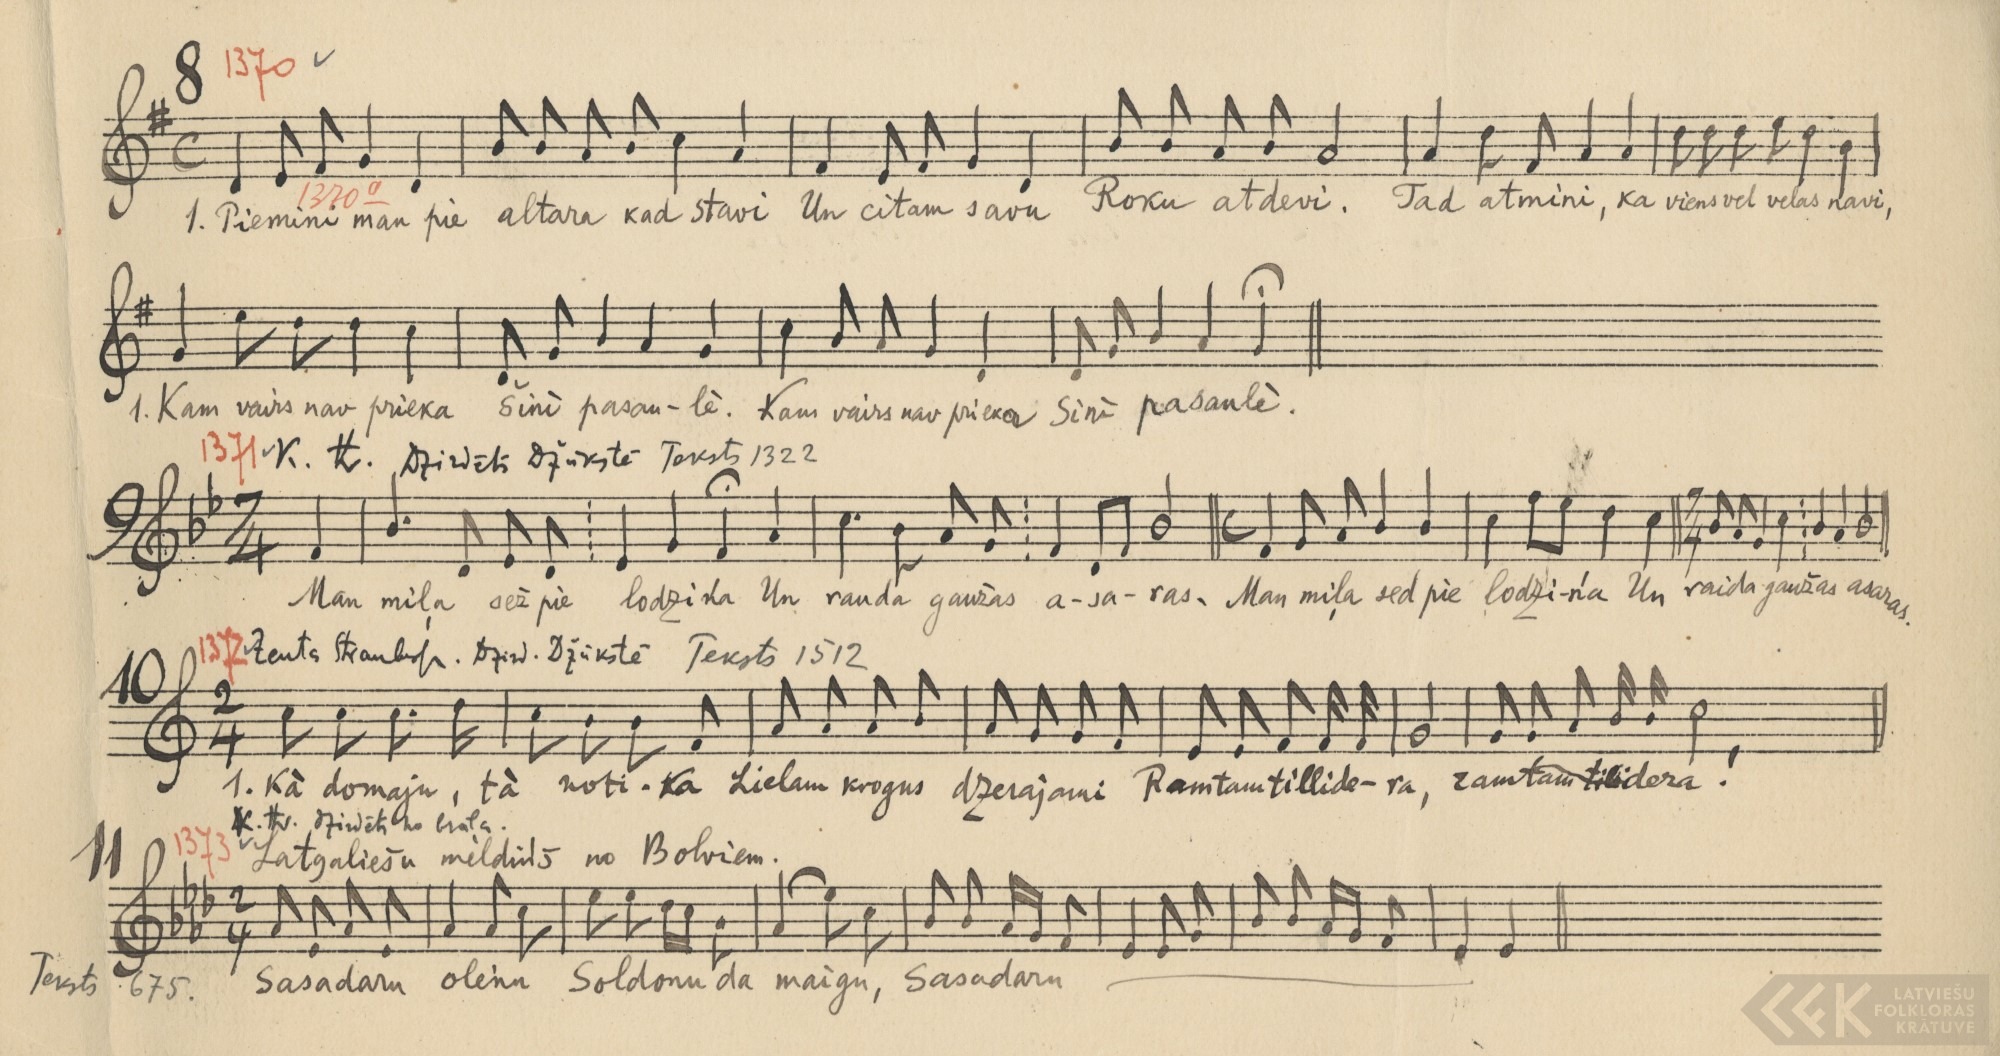 8 1370 ✓
1370a
1. Piemini man pie altara kad stavi Un citam savu Roku atdevi. Tad atmini, ka viens vel velas navi,
1. Kam vairs nav prieka Šinī pasau-lē. Kam vairs nav prieka Sinī pasaulē.
1371 ✓ K. Dzirdēts Džūkstē Teksts 1322
9 7/4 7/4
Man miļa sēž pie lodziņa Un rauda gaužas a-sa-ras. Man miļa sed pie lodzi-ņa Un raida gaužas asaras.
1372 ✓ Zenta Dzird. Džūkstē Teksts 1512
10 2/4
1. Kà domaju, tà noti-ka Lielam krogus dzerajami Ramtamtillide-ra, ramtamtilidera!
K. dzirdēts no brāļa.
11 1373 ✓ Latgaliešu mēldiņš no Bolviem.
2/4
Teksts 675. Sasadaru oleņu Soldonu da maigu, Sasadaru
LATVIEŠU
FOLKLORAS
KRATUVE